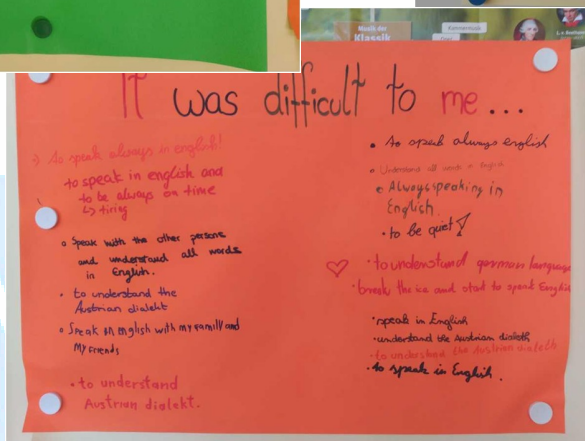 Musik der
Klassik
Kammermusik
It was difficult to me...
→ to speak always in english!
to speak in english and
to be always on time
↳ tiring
• Speak with the other persons
and understand all words
in English.
• to understand the
Austrian dialekt
• Speak in english with my family and
My friends
• to understand
Austrian dialekt.
• to speak always english
• Understand all words in English
• Always speaking in
English.
• to be quiet!
• to understand german language
• break the ice and start to speak English
• speak in English
• understand the Austrian dialeth
• to understand the Austrian dialeth
• to speak in English.